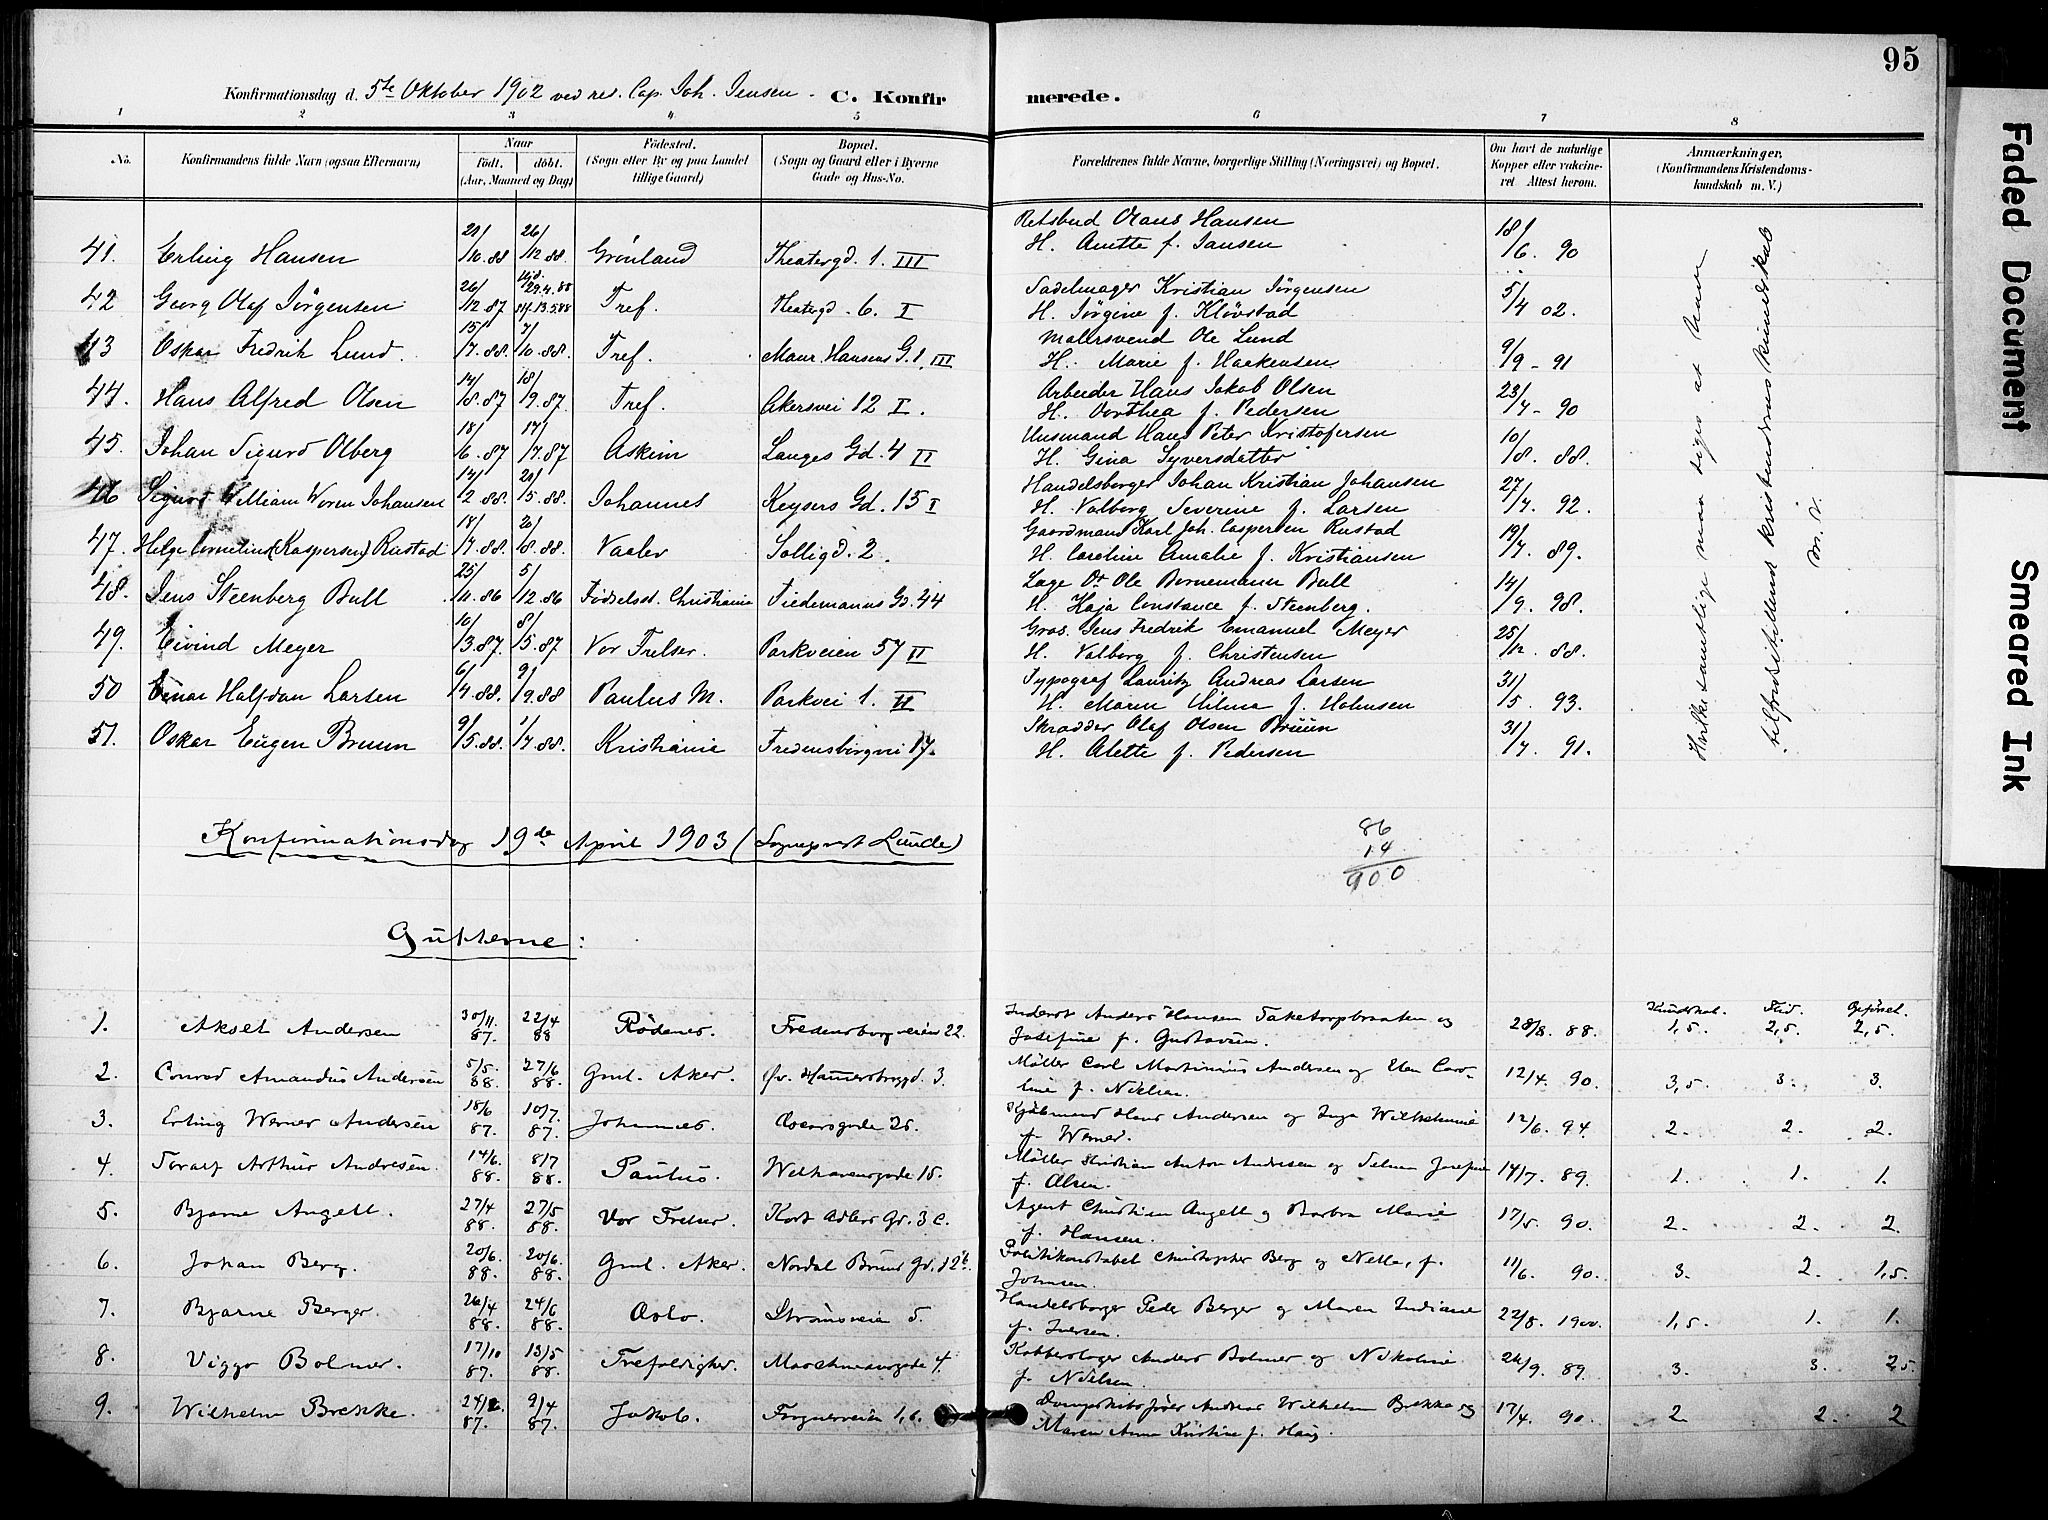 95
Konfirmationsdag d. 5te Oktober 1902 ved res. Cap. Joh. Jensen. C. Konfirmerede.
1 2 3 4 5 6 7 8
No. Konfirmandens fulde Navn (ogsaa Efternavn) Naar født. døbt. (Aar, Maaned og Dag) Fødested. (Sogn eller By og paa Landet tillige Gaard) Bopæl. (Sogn og Gaard eller i Byerne Gade og Hus-No. Forældrenes fulde Navne, borgerlige Stilling (Næringsvei) og Bopæl. Om havt de naturlige Kopper eller vakcineret Attest herom. Anmærkninger, (Konfirmandens Kristendomskundskab m. V.)
41. Erling Hansen 21/10.88 26/12.88. Grønland Theatergd. 1. III Retsbud Olaus Hansen H. Anette f. Jansen 18/6. 90
42 Georg Olaf Jørgensen 26/12.87 Hjd. 29.4.88 Stf. 13.5.88 Tref. Theatergd. 6. I Sadelmager Kristian Jørgensen H. Jørgine f. Kløvstad 5/4 02.
43 Oskar Fredrik Lund. 15/7.88. 7/10.88. Tref. Maur. Hansens G. 1. III Malersvend Ole Lund H. Marie f. Haakensen 9/9 - 91
44. Hans Alfred Olsen 14/8.87 18/9.87. Tref. Akersvei 12 I. Arbeider Hans Jakob Olsen H. Dorthea f. Pedersen 23/7 - 90
45. Johan Sigurd Olberg 18/6.87 17/7.87 Askim Langes Gd. 4 II Husmand Hans Peter Kristofersen H. Gina Syversdatter 10/8. 88.
46 Sigurd William Woren Johansen 14/2.88. 21/5.88. Johannes Keysers Gd. 15 I Handelsborger Johan Kristian Johansen H. Valborg Severine f. Larsen 27/7. 92.
47. Helge Cornelius (Kaspersen) Rustad 18/7.88. 26/8.88. Vaaler Solligd. 2. Gaardmand Karl Joh. Caspersen Rustad H. Caroline Amalie f. Kristiansen 19/7. 89.
48. Jens Steenberg Bull 25/11.86 5/12.86 Fødselsst. Christiania Tiedemanns Gd. 44 Læge Ole Bornemann Bull H. Kaja Constance f. Steenberg. 14/9. 98.
49. Eivind Meyer 10/3.87. 8/5.87 Vor Frelser. Parkveien 57 II Gros. Jens Fredrik Emanuel Meyer H. Valborg f. Christensen 25/12. 88.
50 Einar Halfdan Larsen 6/4.88. 9/9.88 Paulus M. Parkvei 1. II Typograf Lauritz Andreas Larsen H. Maren Hilma f. Holmsen 31/5. 93.
51. Oskar Eugen Bruun 9/5.88. 1/7.88. Kristiania Fredensborgvei 17. Skrædder Olaf Olsen Brüün H. Alette f. Pedersen 31/7. 91.
Hvilke samtlige maa siges at have
tilfredsstillende kristendomskundskab
m.v.
Konfirmationsdag 19de April 1903 (Sogneprest Lunde)
86
14
900
Gutterne:
Kundskab. Flid. Opførsel.
1. Aksel Andersen 30/11.87. 22/4 88 Rødenes. Fredensborgveien 22. Inderst Anders Hansen Taketorpbraaten og Josefine f. Gustavsen. 28/8. 88. 1,5. 2,5. 2,5.
2. Conrad Amandus Andersen 5/5.88. 27/6 88. Gml. Aker. Øv. Hammersborggd. 3. Møller Carl Martinius Andersen og Elen Caroline f. Nielsen. 12/4. 90. 3,5. 3. 3.
3. Erling Werner Andersen 18/6 87. 10/7. 87. Johannes. Oscarsgade 26. Kjøbmand Hans Andersen og Inga Wilhelmine f. Werner. 12/6. 94. 2. 2. 2.
4. Toralf Arthur Andresen. 14/6. 88. 8/7 88. Paulus. Welhavensgade 15. Møller Kristian Anton Andresen og Selma Josefine f. Olsen. 14/7. 89. 1. 1. 1.
5. Bjarne Angell. 27/4 88. 27/5 88. Vor Frelser. Kort Adlers Gd. 3 c. Agent Christian Angell og Barbra Marie f. Hansen. 17/5. 90. 2. 2. 2
6. Johan Berg. 20/6. 88. 20/6. 88. Gml. Aker. Nordal Bruns Gd. 12b. Politikonstabel Christopher Berg og Nella, f. Johnsen. 11/6. 90. 3. 2. 1,5.
7. Bjarne Berger. 26/4 88. 24/6 88. Oslo. Strømsveien 5. Handelsborger Peder Berger og Maren Indiane f. Iversen. 22/8. 1900. 1,5. 1. 1.
8. Viggo Bolmer. 17/10 87. 13/5 88. Trefoldighed. Maschmansgade 4. Kobberslager Anders Bolmer og Nikoline f. Nielsen. 26/9. 89. 3. 3. 2,5.
9. Wilhelm Brekke. 24/2. 87. 9/4 87. Jakob. Frognerveien 1,c. Dampskibsfører Andreas Wilhelm Brekke og Maren Anna Kristine f. Haug. 17/4. 90. 2 2. 2
Faded Document
Smeared Ink